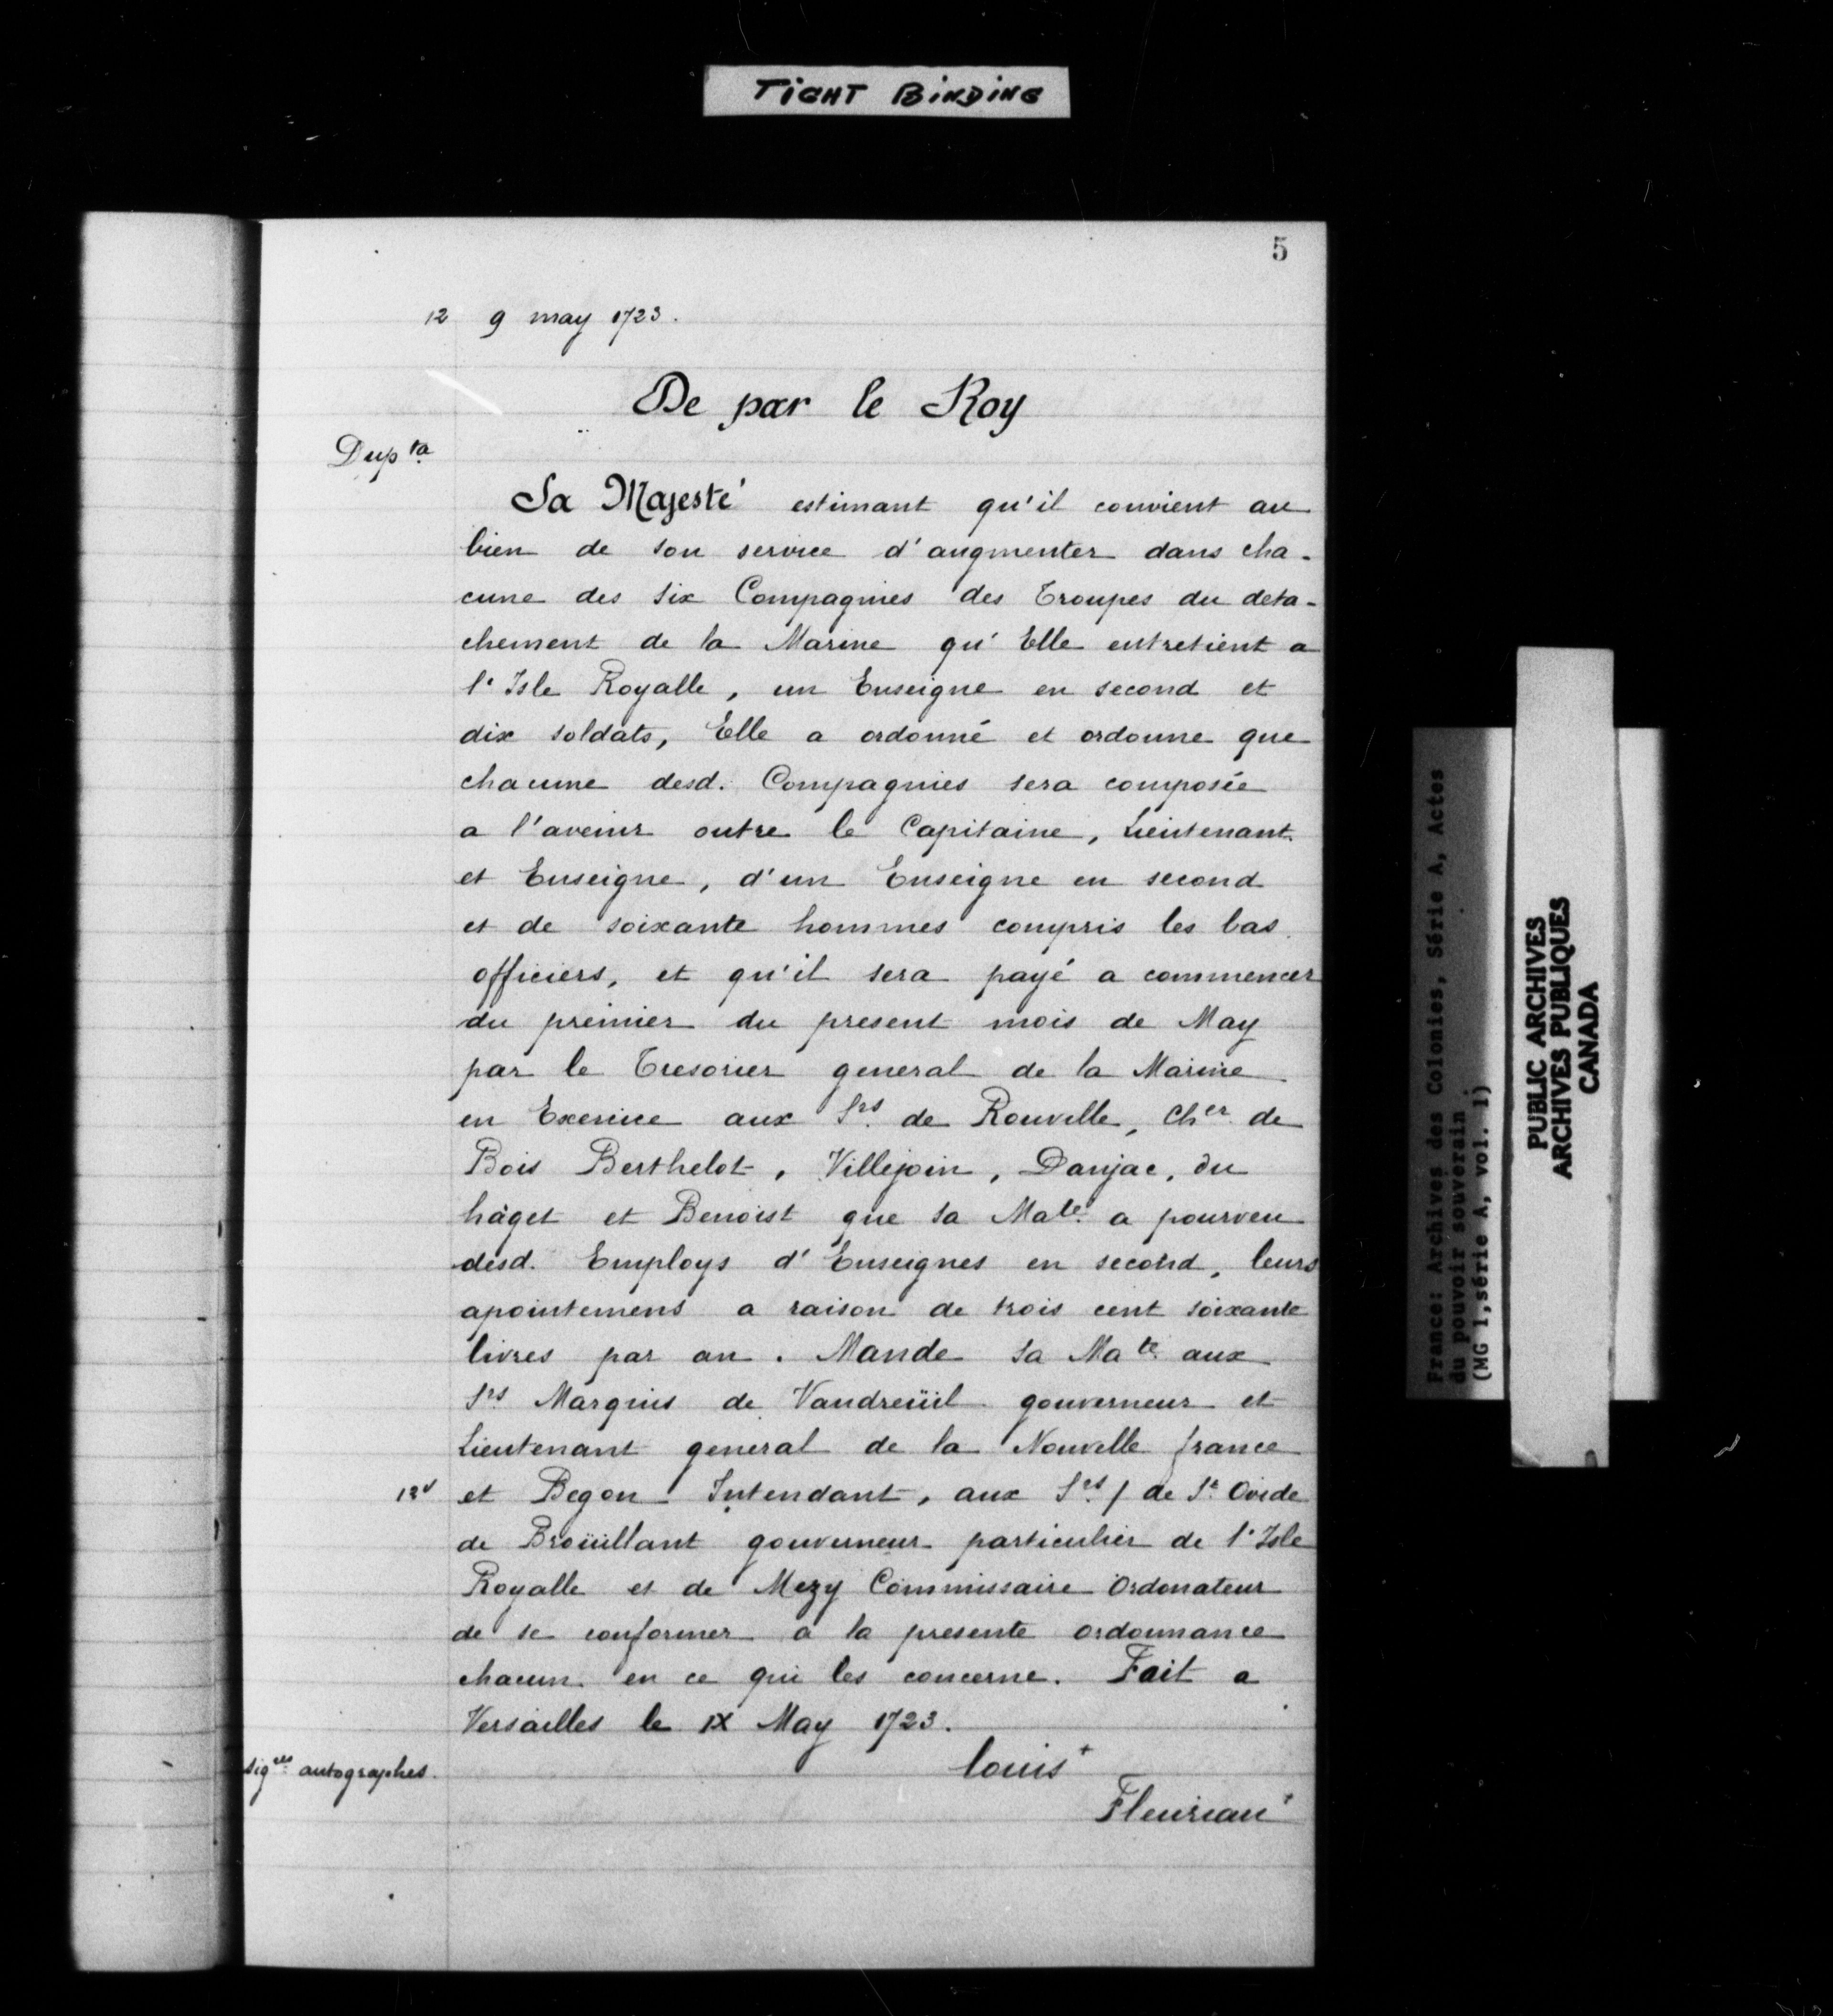 TIGHT BINDING
5
12 9 may 1723.
De par le Roy
Dup ta
Sa Majesté estimant qu'il convient au
bien de son service d'augmenter dans cha-
cune des six Compagnies des Troupes du deta-
chement de la Marine qu'Elle entretient a
l'Isle Royalle, un Enseigne en second et
dix soldats, Elle a ordonné et ordonne que
chacune desd. Compagnies sera composée
a l'avenir outre le Capitaine, Lieutenant
et Enseigne, d'un Enseigne en second
et de soixante hommes compris les bas
officiers, et qu'il sera payé a commencer
du premier du present mois de May
par le Tresorier general de la Marine
en Exercice aux Srs. de Rouville, Cher de
Bois Berthelot, Villejoin, Danjac, du
háget et Benoist que sa Maté a pourveu
desd. Employs d'Enseignes en second, leurs
apointemens a raison de trois cent soixante
livres par an. Mande sa Maté aux
Srs Marquis de Vaudreüil gouverneur et
Lieutenant general de la Nouvelle france
12v et Begon Intendant, aux Srs / de St Ovide
de Broüillant gouverneur particulier de l'Isle
Royalle et de Mezy Commissaire Ordonateur
de se conformer a la presente ordonnance
chacun en ce qui les concerne. Fait a
Versailles le IX May 1723.
sigres autographes.
louis +
Fleuriau +
France: Archives des Colonies, Série A, Actes
du pouvoir souverain
(MG 1,série A, vol. 1)
PUBLIC ARCHIVES
ARCHIVES PUBLIQUES
CANADA